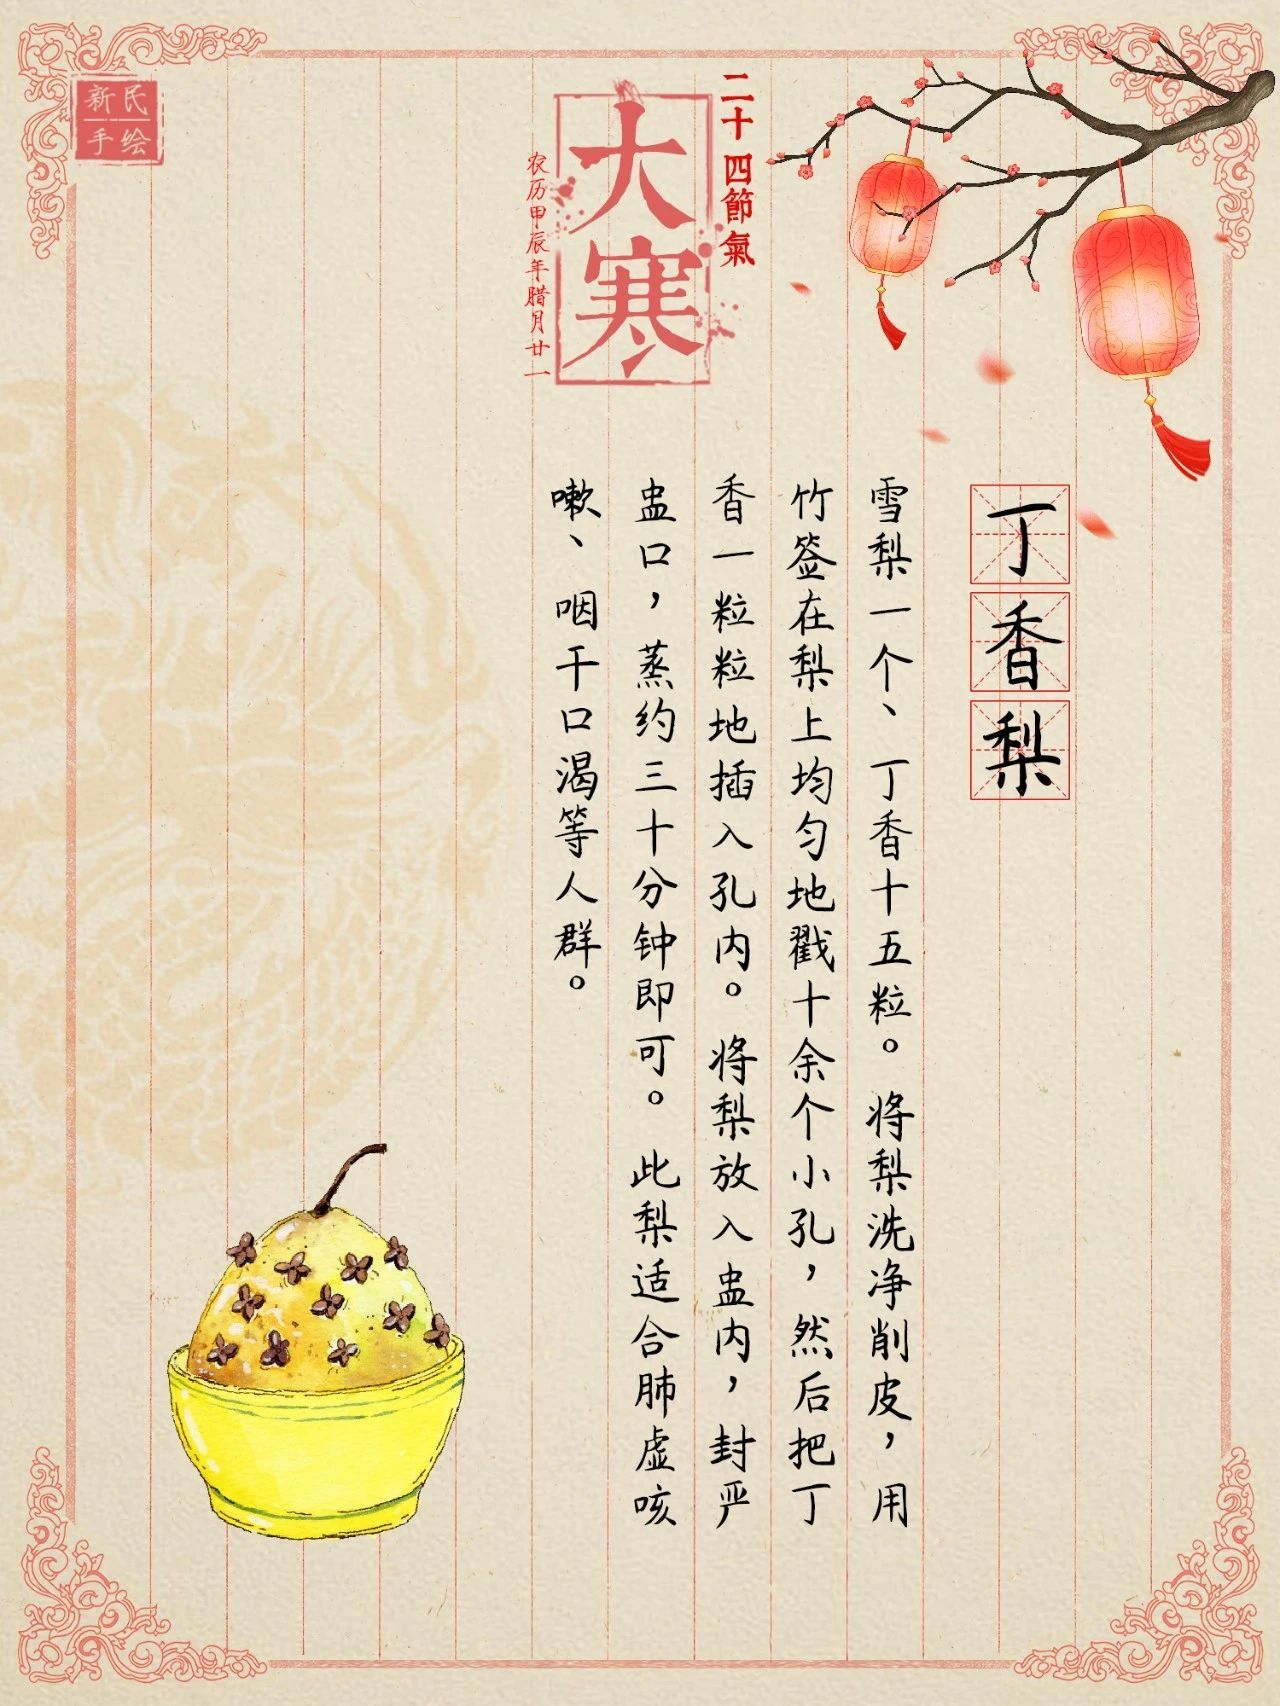 新民
手绘
二十四節氣
大寒
农历甲辰年腊月廿一
丁香梨
雪梨一个、丁香十五粒。将梨洗净削皮，用
竹签在梨上均匀地戳十余个小孔，然后把丁
香一粒粒地插入孔内。将梨放入盅内，封严
盅口，蒸约三十分钟即可。此梨适合肺虚咳
嗽、咽干口渴等人群。